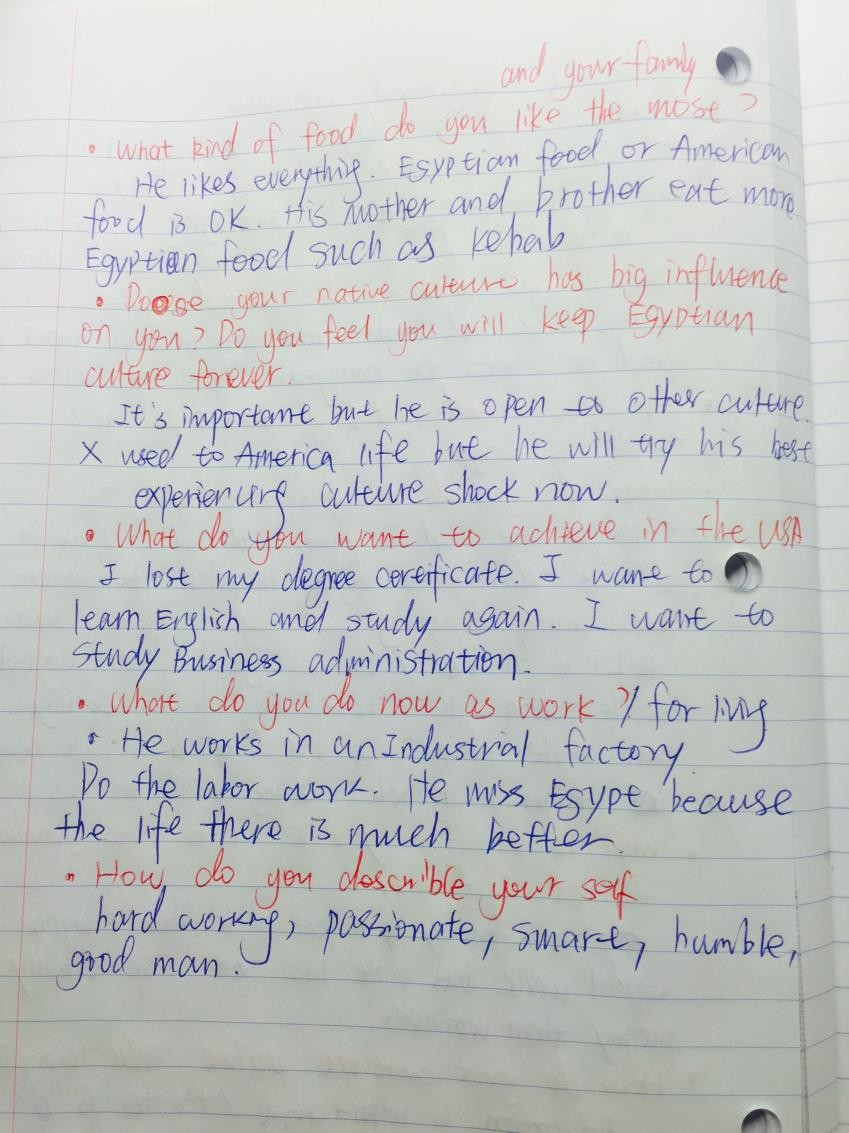 and your family
• What kind of food do you like the most?
He likes everything. Egyptian food or American
food is OK. His mother and brother eat more
Egyptian food such as kebab
• Doose your native culture has big influence
on you? Do you feel you will keep Egyptian
culture forever.
It's important but he is open to other culture.
X used to America life but he will try his best
experiencing culture shock now.
• What do you want to achieve in the USA
I lost my degree certificate. I want to
learn English and study again. I want to
study Business administration.
• What do you do now as work?/ for living
• He works in an Industrial factory.
Do the labor work. He miss Egypt because
the life there is much better.
• How do you describle your self
hard working, passionate, smart, humble,
good man.